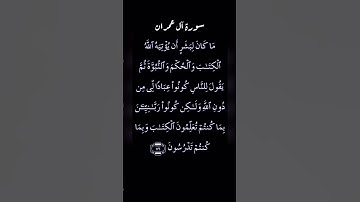 سورة آل عمران
مَا كَانَ لِبَشَرٍ أَن يُؤْتِيَهُ ٱللَّهُ
ٱلْكِتَـٰبَ وَٱلْحُكْمَ وَٱلنُّبُوَّةَ ثُمَّ
يَقُولَ لِلنَّاسِ كُونُوا۟ عِبَادًا لِّى مِن
دُونِ ٱللَّهِ وَلَـٰكِن كُونُوا۟ رَبَّـٰنِيِّـۧنَ
بِمَا كُنتُمْ تُعَلِّمُونَ ٱلْكِتَـٰبَ وَبِمَا
كُنتُمْ تَدْرُسُونَ ﴿٧٩﴾